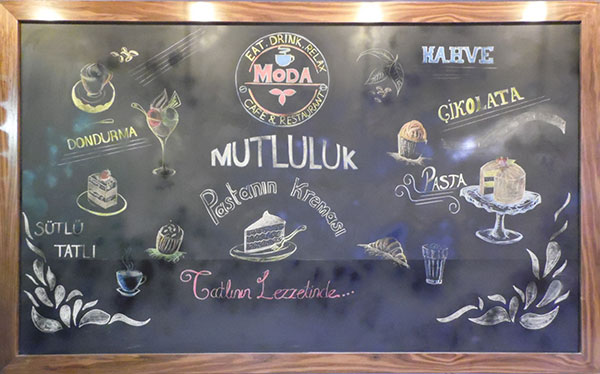 EAT, DRINK, RELAX
MODA
CAFE & RESTAURANT
KAHVE
ÇİKOLATA
DONDURMA
MUTLULUK
PASTA
Pastanın Kreması
SÜTLÜ
TATLI
Tatlının Lezzetinde....